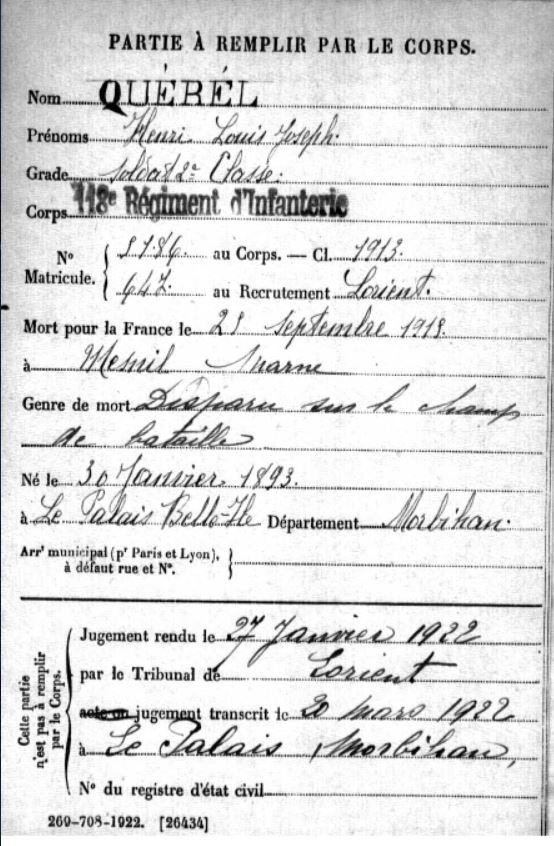 PARTIE À REMPLIR PAR LE CORPS.
Nom QUÉRÉL
Prénoms Henri Louis Joseph.
Grade Soldat 2e Classe.
Corps 118e Régiment d'Infanterie
No Matricule. 8786 au Corps. — Cl. 1913.
647 au Recrutement Lorient.
Mort pour la France le 28 Septembre 1915
à Mesnil Marne
Genre de mort Disparu sur le champ
de bataille
Né le 30 Janvier 1893.
à Le Palais Belle-Ile Département Morbihan.
Arrt municipal (pr Paris et Lyon),
à défaut rue et No.
Cette partie n'est pas à remplir par le Corps.
Jugement rendu le 27 Janvier 1922
par le Tribunal de Lorient
acte ou jugement transcrit le 20 mars 1922
à Le Palais Morbihan,
No du registre d'état civil
269-708-1922. [26434]